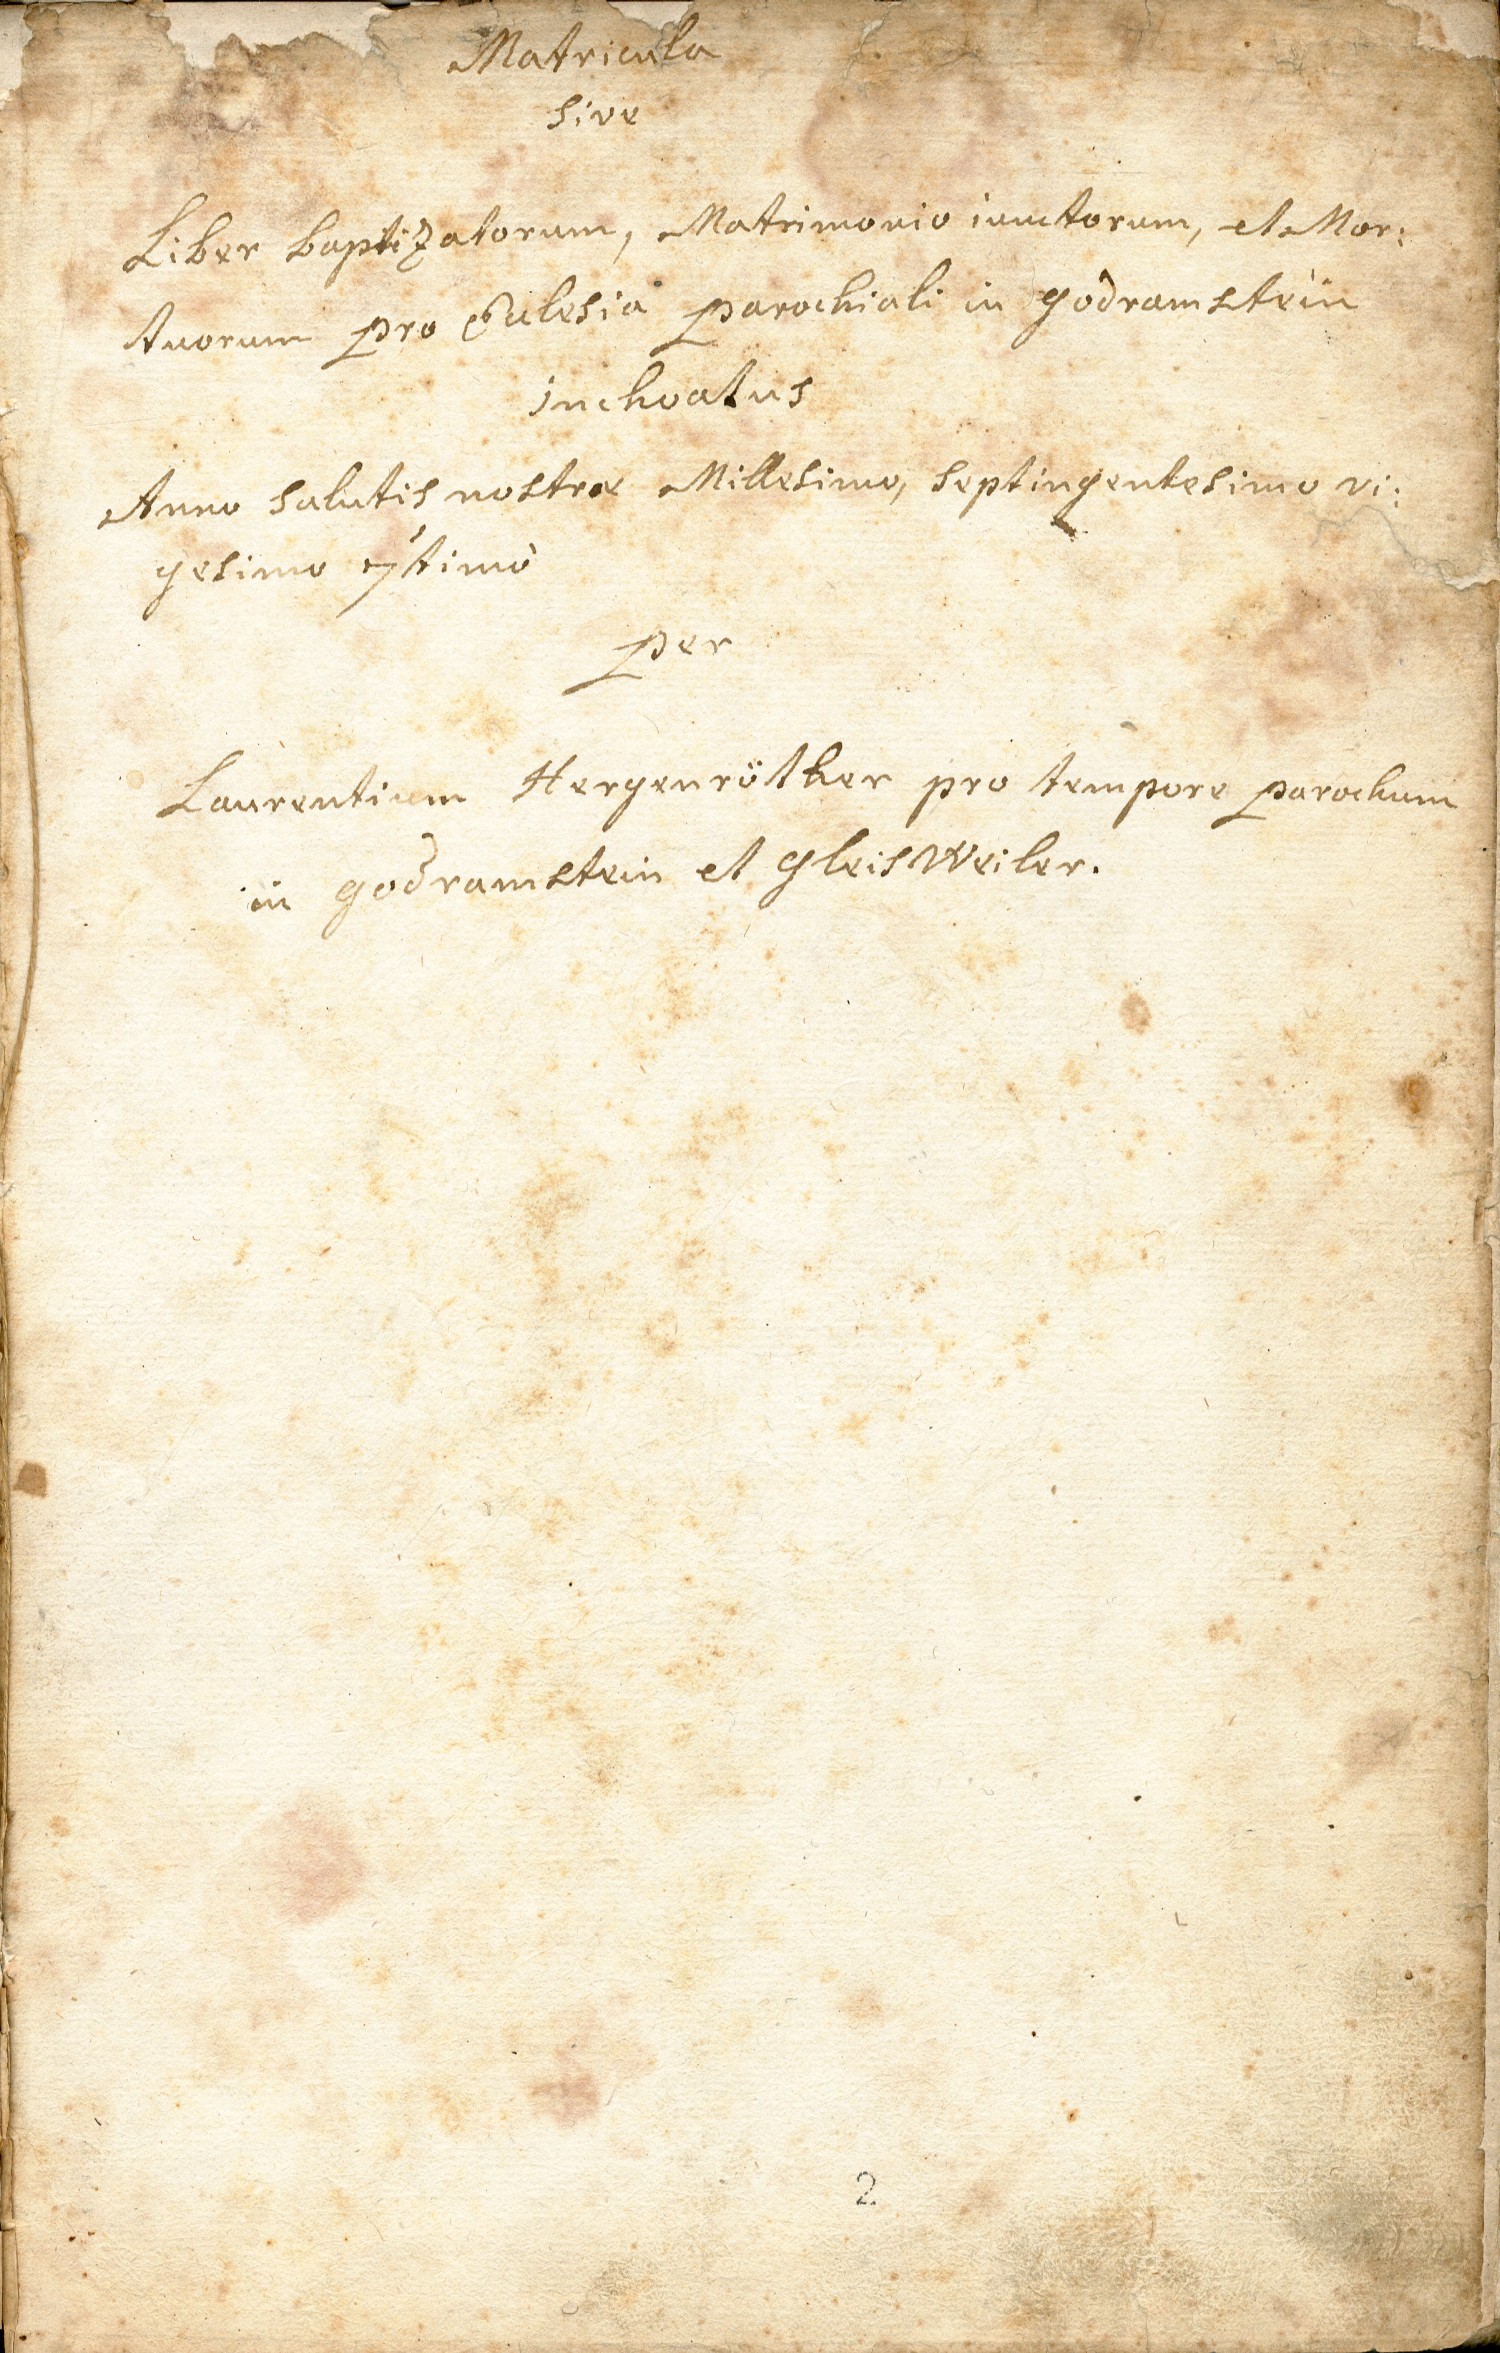 Matricula
sive
Liber baptizatorum, Matrimonio iunctorum, et Mor:
tuorum pro Ecclesia parochiali in godramstein
inchoatus
Anno salutis nostræ Millesimo, septingentesimo vi:
gesimo 7timo
per
Laurentium Hergenröther pro tempore parochum
in godramstein et gleisWeiler.
2